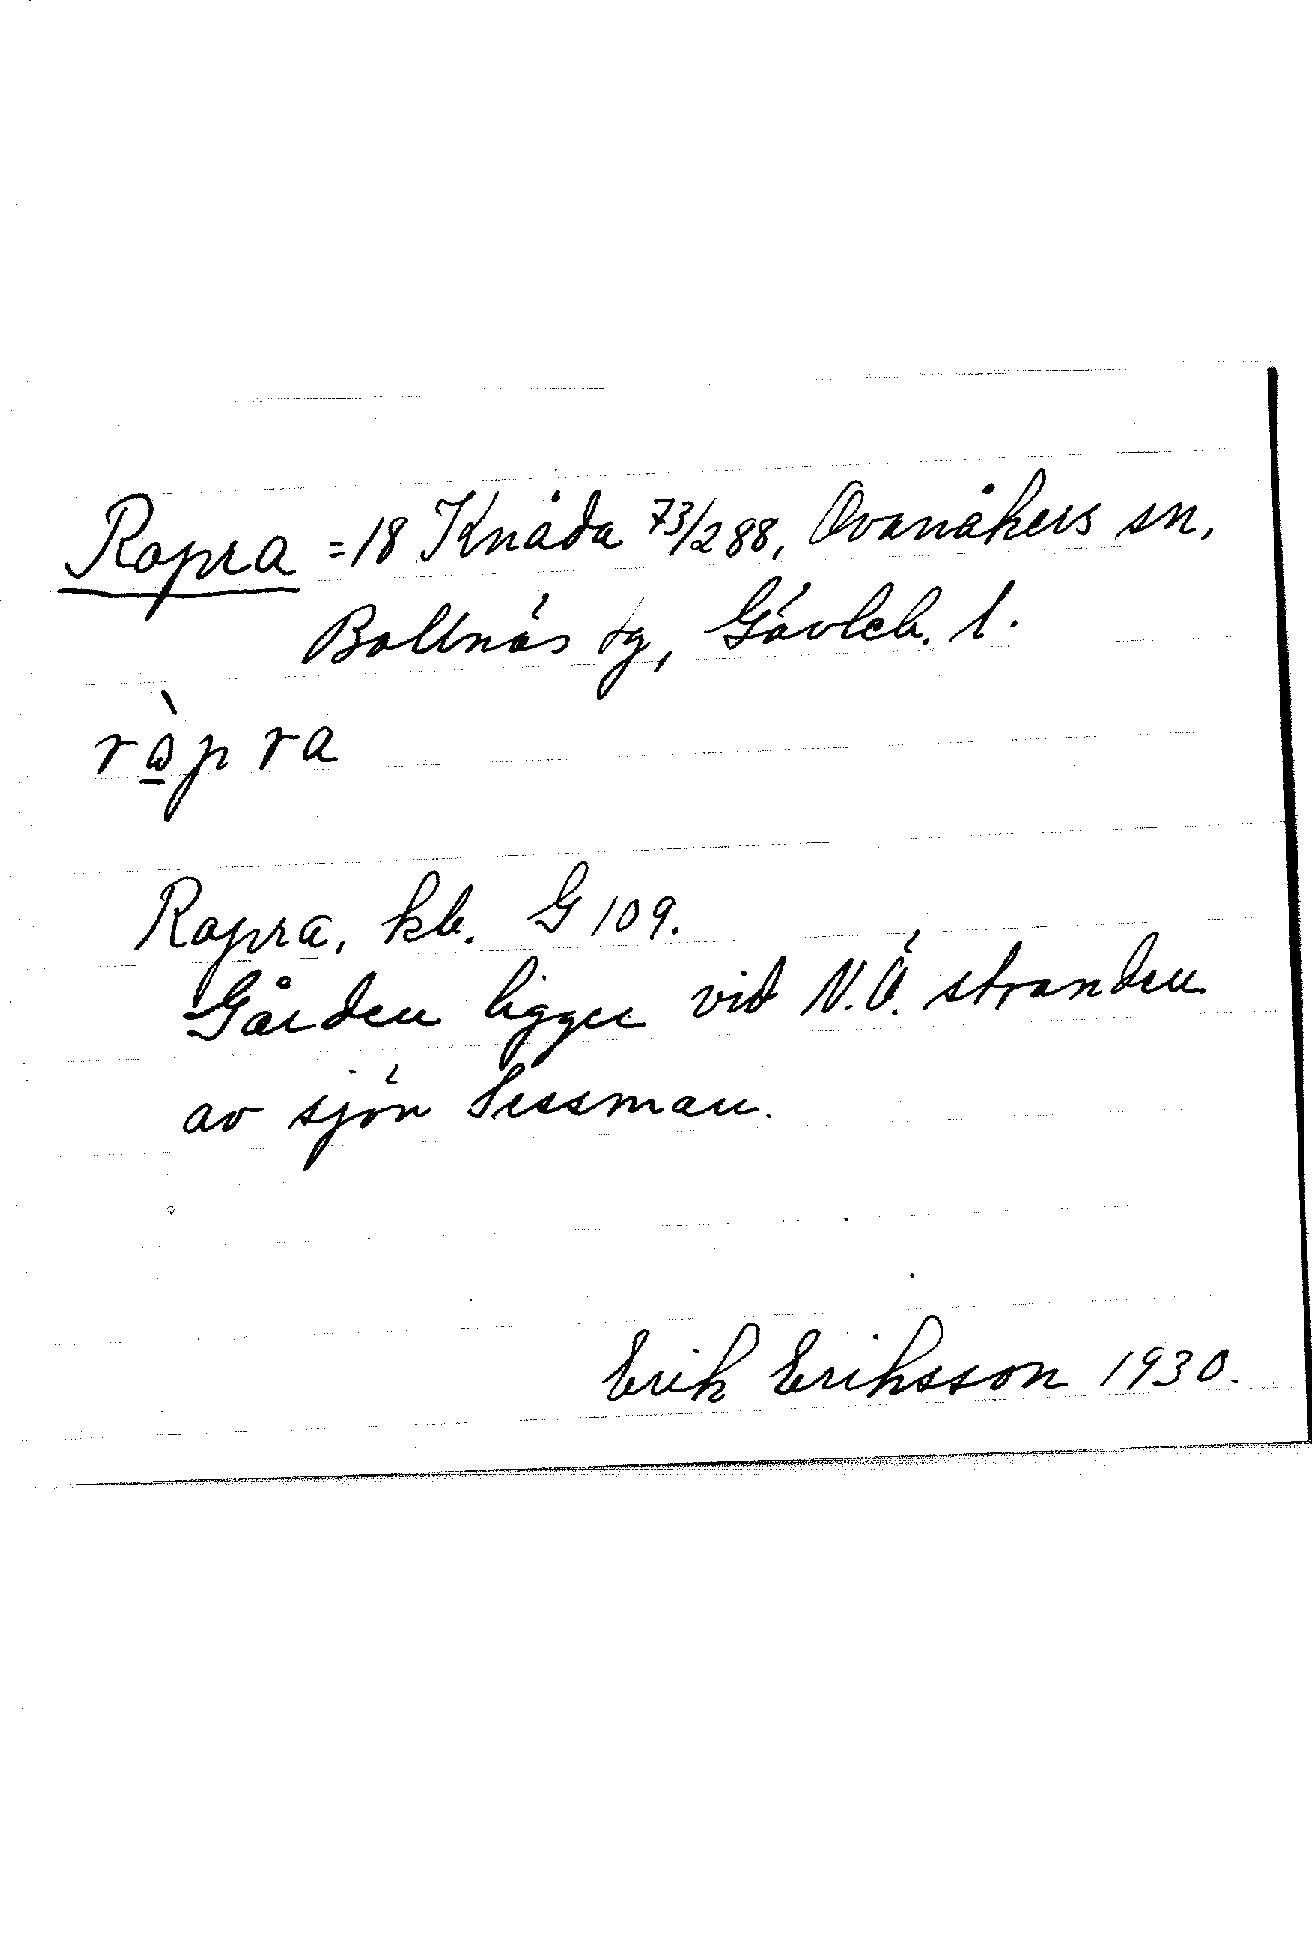 Ropra = 18 Knåda 73/288, Ovanåkers sn,
Bollnäs tg, Gävleb. l.
ròpra
Ropra, kb. G 109.
Gården ligger vid N.Ö. stranden
av sjön Sessman.
Erik Eriksson 1930.